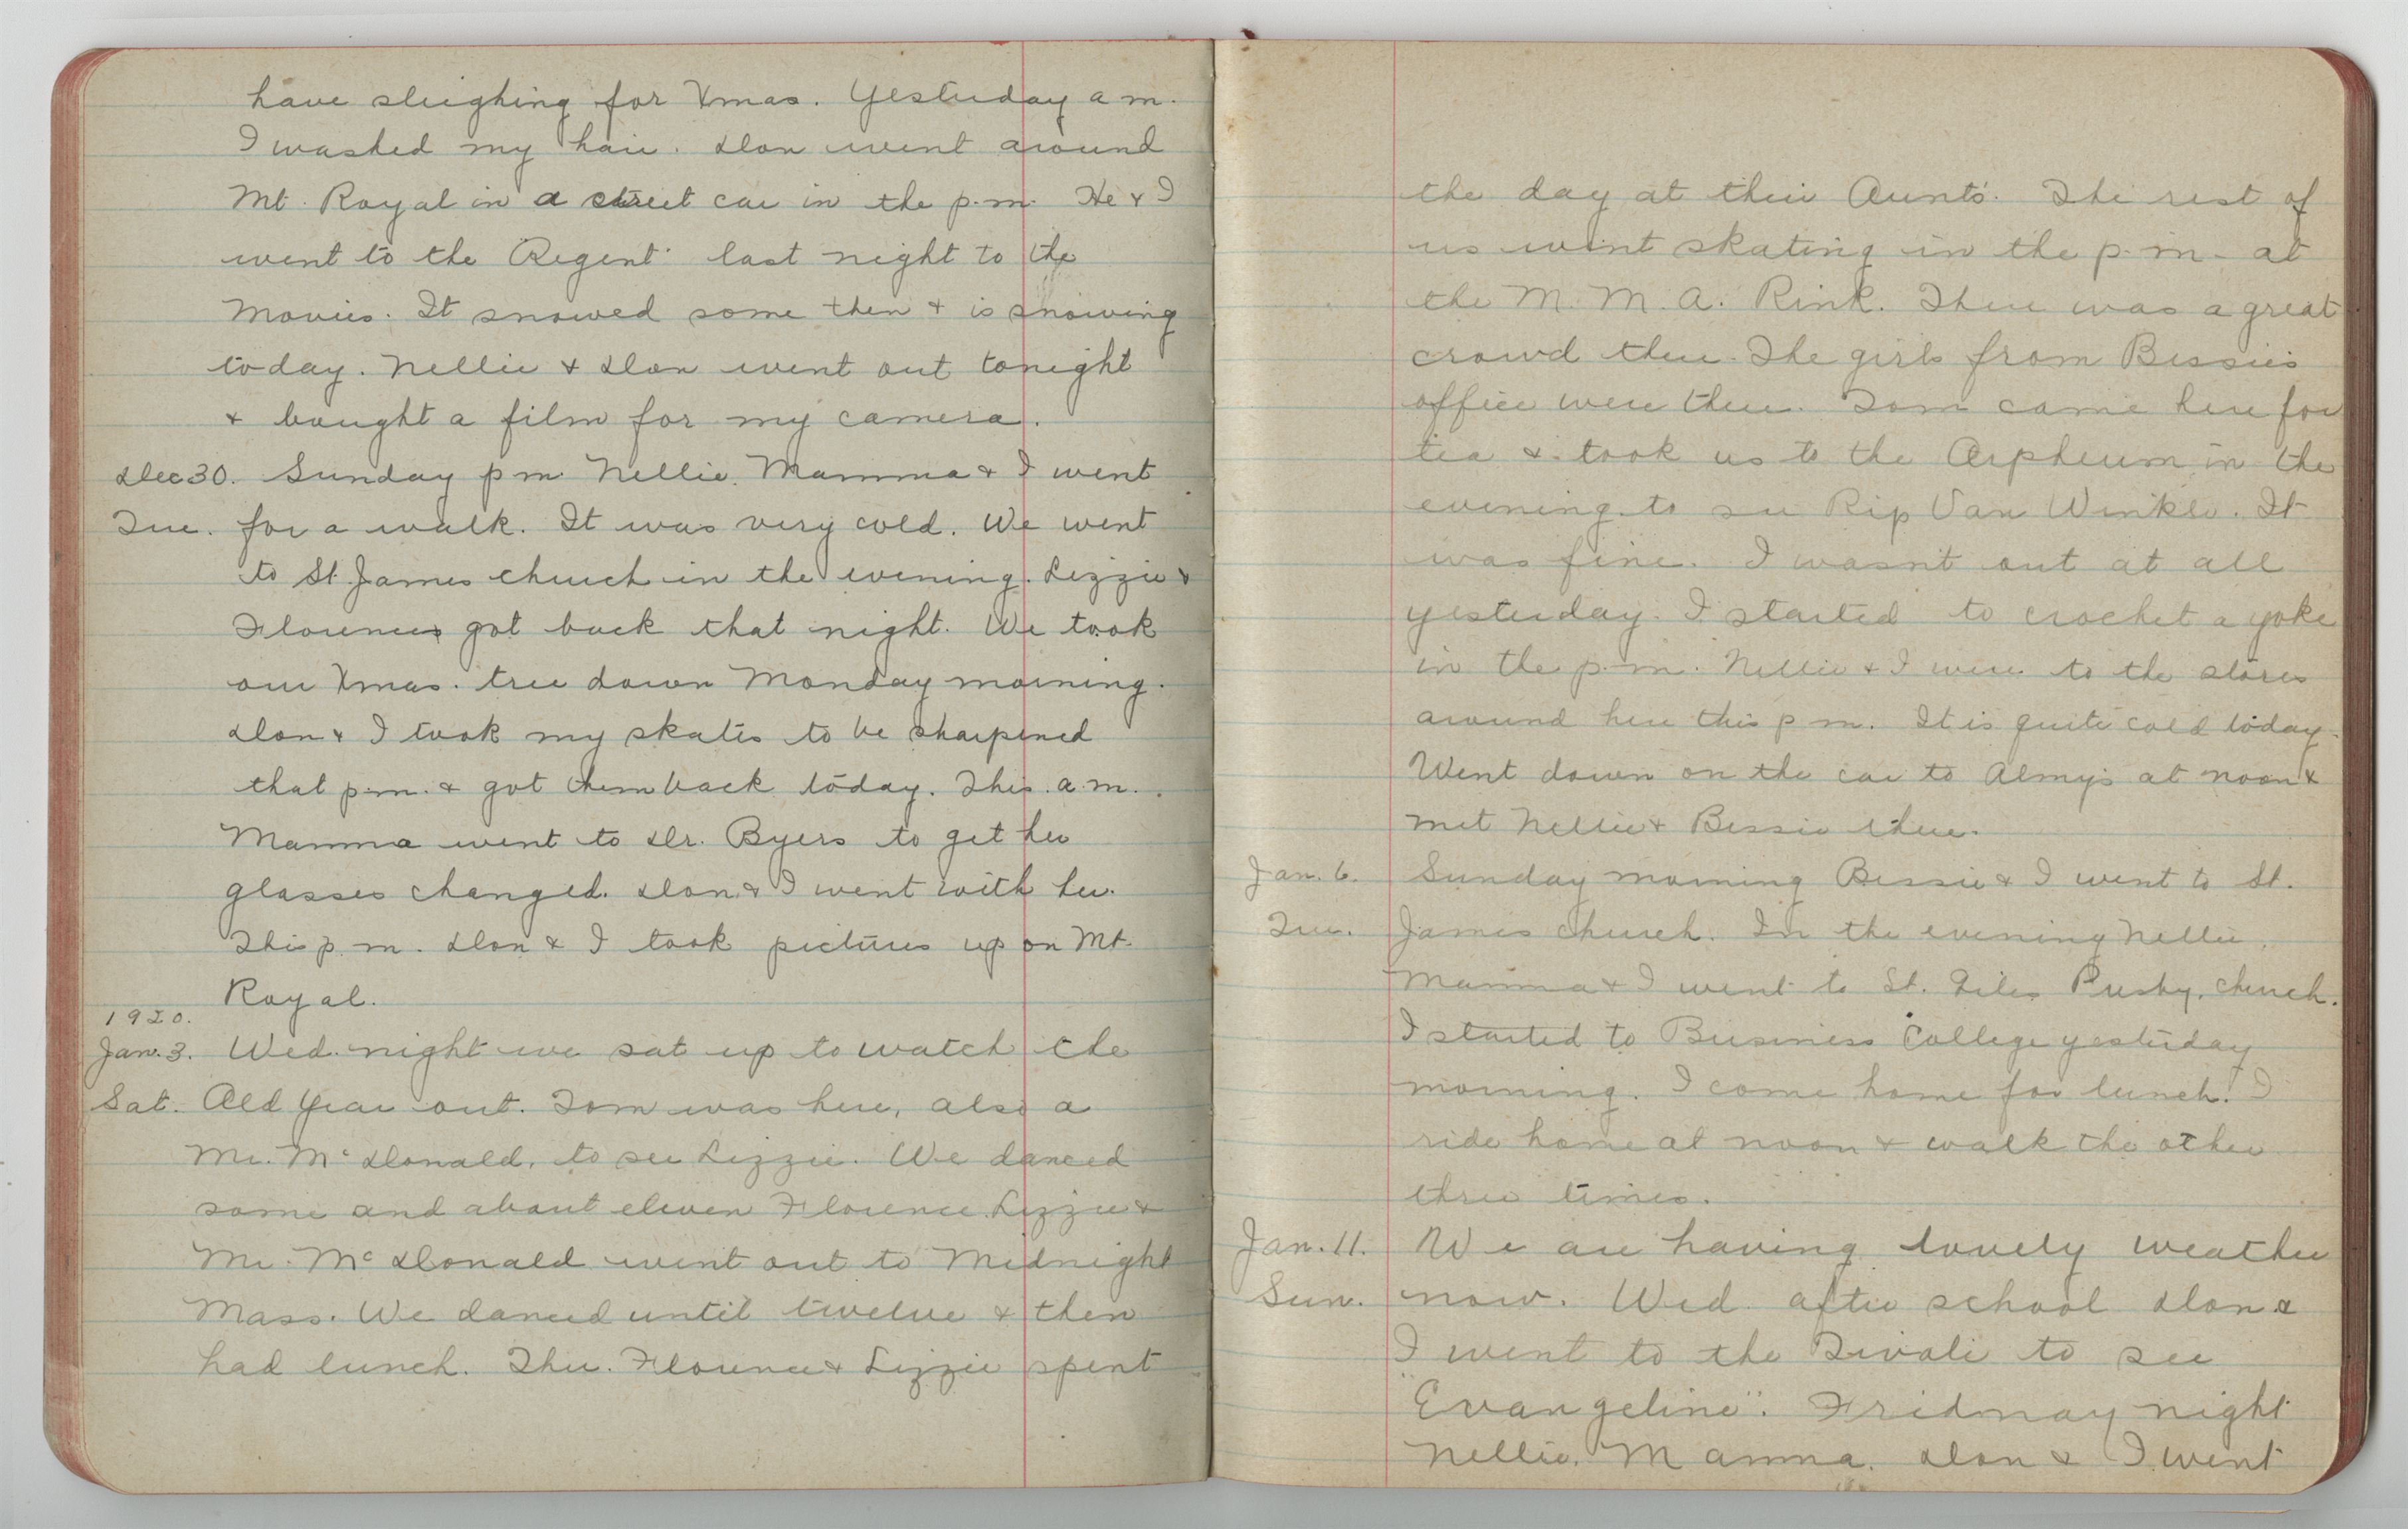 have sleighing for Xmas. Yesterday a m.
I washed my hair. Don went around
Mt. Royal in a street car in the p.m. He & I
went to the "Regent" last night to the
Movies. It snowed some then & is snowing
today. Nellie & Don went out tonight
& bought a film for my camera.
Dec 30. Sunday p m Nellie, Mamma & I went
Tue. for a walk. It was very cold. We went
to St. James church in the evening. Lizzie &
Florence got back that night. We took
our Xmas. tree down Monday morning.
Don & I took my skates to be sharpened
that p.m. & got them back today. This a.m.
Mamma went to Dr. Byers to get her
glasses changed. Don & I went with her.
This p.m. Don & I took pictures up on Mt.
Royal.
1920.
Jan. 3. Wed. night we sat up to watch the
Sat. Old Year out. Tom was here, also a
Mr. McDonald, to see Lizzie. We danced
some and about eleven Florence, Lizzie &
Mr. McDonald went out to Midnight
Mass. We danced until twelve & then
had lunch. Thu. Florence & Lizzie spent
the day at their Aunts'. The rest of
us went skating in the p.m. at
the M. M. A. Rink. There was a great
crowd there. The girls from Bessie's
office were there. Tom came here for
tea & took us to the Orpheum in the
evening to see Rip Van Winkle. It
was fine. I wasn't out at all
yesterday. I started to crochet a yoke
in the p.m. Nellie & I were to the stores
around here this p m. It is quite cold today.
Went down on the car to Almy's at noon &
met Nellie & Bessie there.
Jan. 6. Sunday morning Bessie & I went to St.
Tue. James church. In the evening Nellie,
Mamma & I went to St. Giles Presby. church.
I started to Business College yesterday
morning. I come home for lunch. I
ride home at noon & walk the other
three times.
Jan. 11. We are having lovely weather
Sun. now. Wed. after school Don &
I went to the Tivoli to see
"Evangeline". Fridnay night
Nellie, Mamma, Don & I went